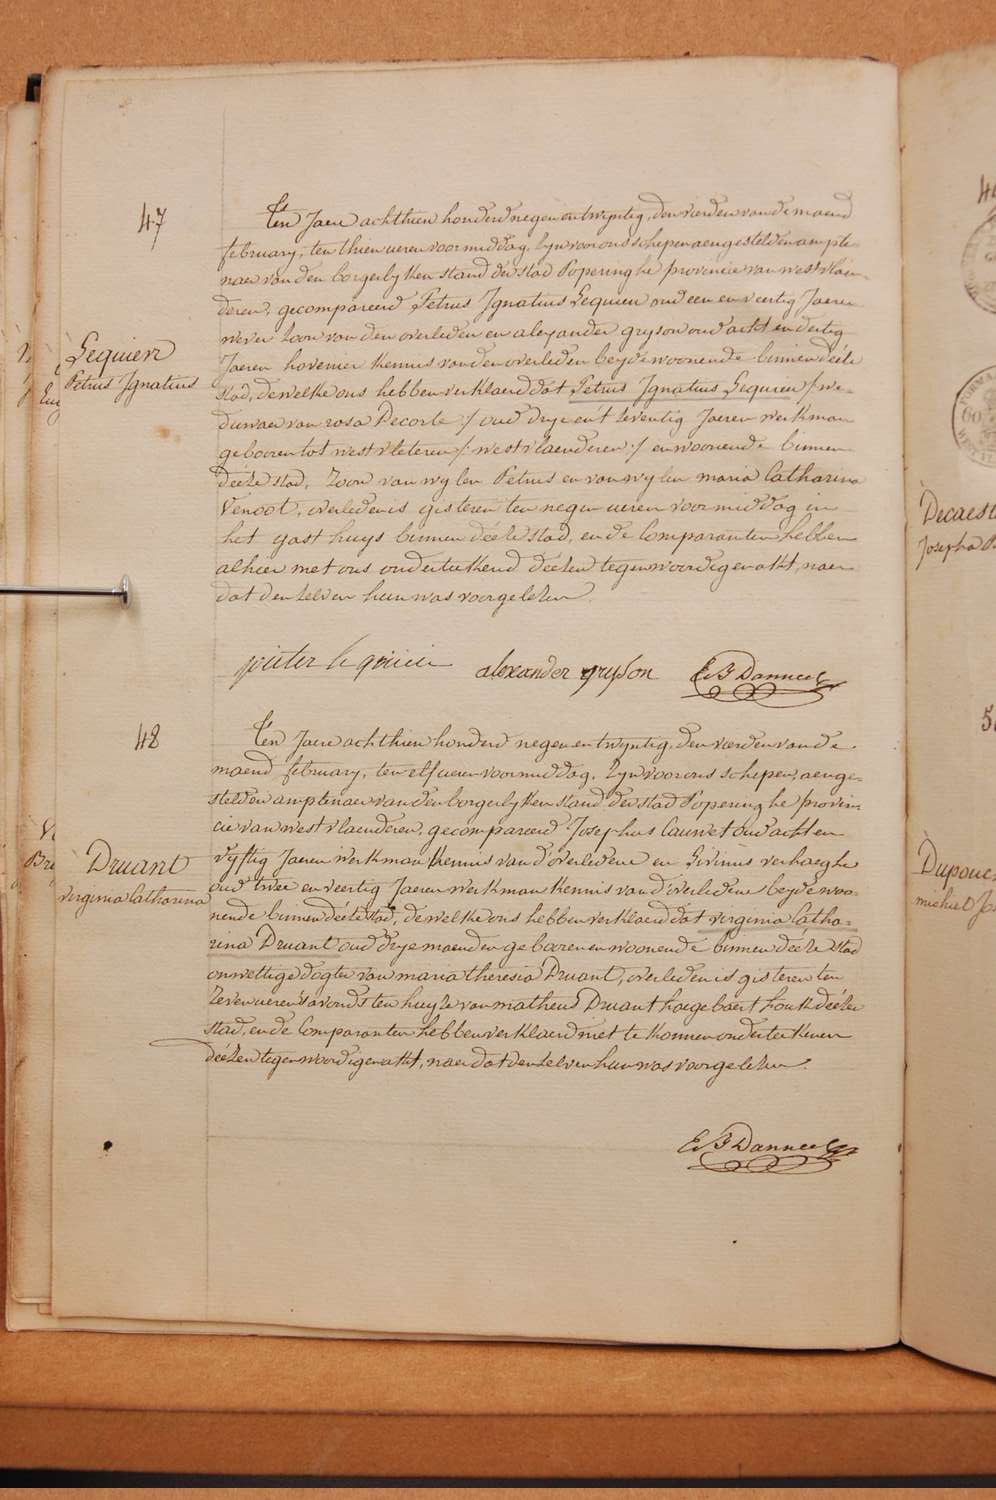 47
Ten Jaere achthien honderd negen en twyntig, den vierden van de maend
february, ten thien ueren voormiddag, Zyn voor ons schepen aengestelden ampte-
naer van den borgerlyken stand der stad Poperinghe provincie van westvlaen-
deren, gecompareerd Petrus Ignatius Lequien oud een en veertig Jaeren
wever zoon van den overleden en alexander gryson oud acht en dertig
Jaeren hovenier kennis van den overleden beyde woonende binnen déése
stad, de welke ons hebben verklaerd dat Petrus Ignatius Lequien /: we-
duwaer van rosa Decorte :/ oud drye en't zeventig Jaeren werkman
geboren tot westvleteren /: westvlaenderen :/ en woonende binnen
déése stad, Zoon van wylen Petrus en van wylen maria Catharina
Venoot, overleden is gisteren ten negen ueren voormiddag in
het gasthuys binnen déése stad, en de Comparanten hebben
alhier met ons onderteekend déésen tegenwoordigen akt, naer
dat den zelven hun was voorgelezen.
Lequien
Petrus Ignatius
pieter lequien alexander gryson E B Danneel
48
Ten Jaere achthien honderd negen en twyntig, den vierden van de
maend february, ten elf ueren voormiddag, Zyn voor ons schepen, aenge-
stelden amptenaer van den borgerlyken stand der stad Poperinghe provin-
cie van westvlaenderen, gecompareerd Josephus Cauwet oud acht en
vyftig Jaeren werkman kennis van d'overledene en Livinus verhaeghe
oud twee en veertig Jaeren werkman kennis van d'overledene beyde woo-
nende binnen déése stad, de welke ons hebben verklaerd dat virginia Catha-
rina Druant oud drye maenden geboren en woonende binnen déése stad
onwettige dogter van maria theresia Druant, overleden is gisteren ten
zeven ueren 's avonds ten huyze van matheus Druant haegebaert houk déézer
stad, en de Comparanten hebben verklaerd niet te konnen onderteekenen
déésen tegenwoordigen akt, naer dat den zelven hun was voorgelezen.
Druant
virginia Catharina
E B Danneel
Decaest
Josepha
Dupouc
michiel Jo